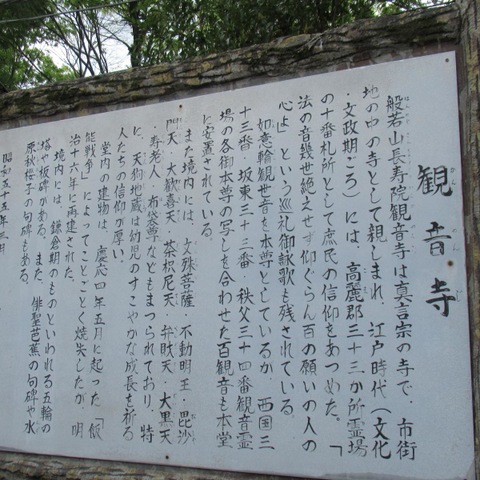 観音寺
かんのんじ
般若山長寿院観音寺は真言宗の寺で、市街
地の中の寺として親しまれ、江戸時代(文化
・文政期ごろ)には、高麗郡三十三か所霊場
の十番札所として庶民の信仰をあつめた。「
法の音幾世絶えせず仰ぐらん百の願いの人の
心よ」という巡礼御詠歌も残されている。
如意輪観世音を本尊としているが、西国三
十三番・坂東三十三番、秩父三十四番観音霊
場の各御本尊の写しを合わせた百観音も本堂
に安置されている。
また境内には、文殊菩薩・不動明王・毘沙
門天・大歓喜天、荼枳尼天・弁財天・大黒天
・寿老人、布袋尊などもまつられており、特
に、天狗地蔵は幼児のすこやかな成長を祈る
人たちの信仰が厚い。
堂内の建物は、慶応四年五月に起った「飯
能戦争」によってことごとく焼失したが、明
治十六年に再建された。
境内には、鎌倉期のものといわれる五輪の
塔や板碑がある。また、俳聖芭蕉の句碑や水
原秋桜子の句碑もある。
昭和五五年三月